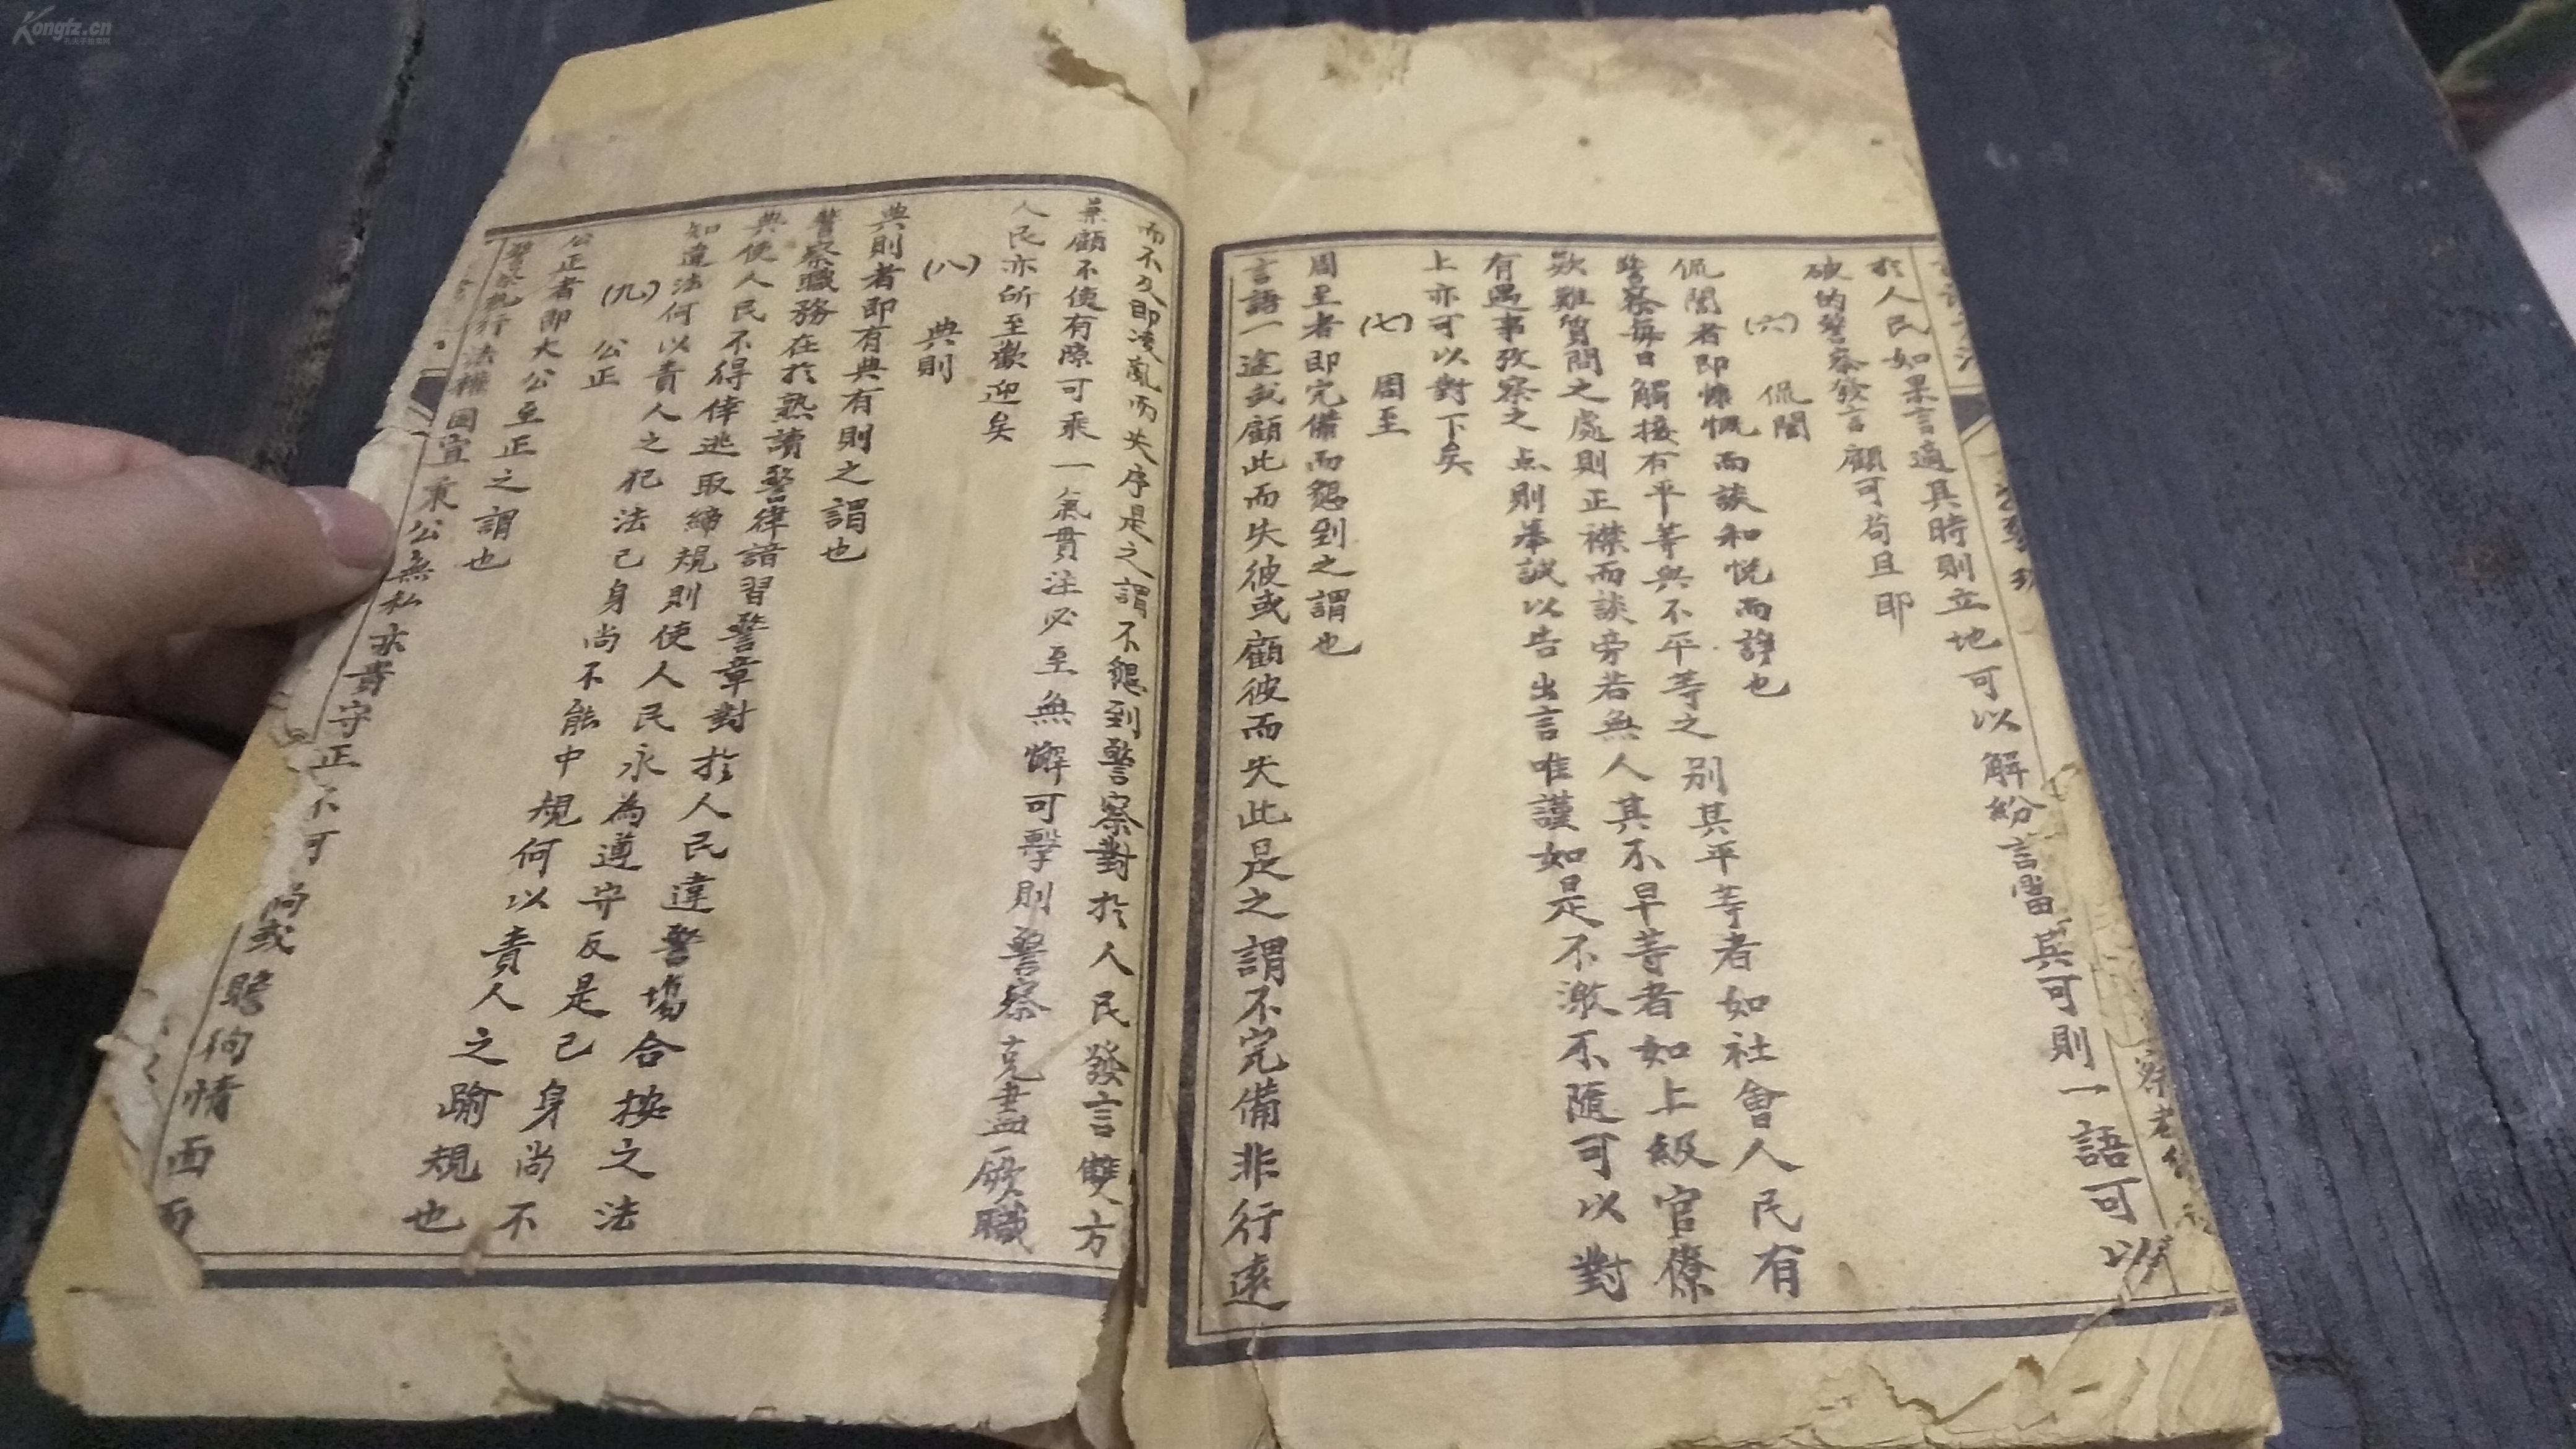 於人民如果言適其時則立地可以解紛言當其可則一語可以
破的警察發言顧可苟且耶
(六) 侃誾
侃誾者即慷慨而談和悅而諍也
警察每日觸接有平等與不平等之別其平等者如社會人民有
欵難質問之處則正襟而談旁若無人其不早等者如上級官僚
有遇事攷察之点則奉誠以告出言唯謹如是不激不隨可以對
上亦可以對下矣
(七) 周至
周至者即完備而懇到之謂也
言語一途或顧此而失彼或顧彼而失此是之謂不完備非行遠
而不久即凌亂而失序是之謂不懇到警察對於人民發言雙方
兼顧不使有隙可乘一氣貫注必至無懈可擊則警察克盡厥職
人民亦所至歡迎矣
(八) 典則
典則者即有典有則之謂也
警察職務在於熟讀警律諳習警章對於人民違警場合按之法
典使人民不得倖逃取締規則使人民永為遵守反是己身尚不
知違法何以責人之犯法己身尚不能中規何以責人之踰規也
(九) 公正
公正者即大公至正之謂也
警察執行法權固宜秉公無私亦貴守正不可 尚或瞻徇情面而